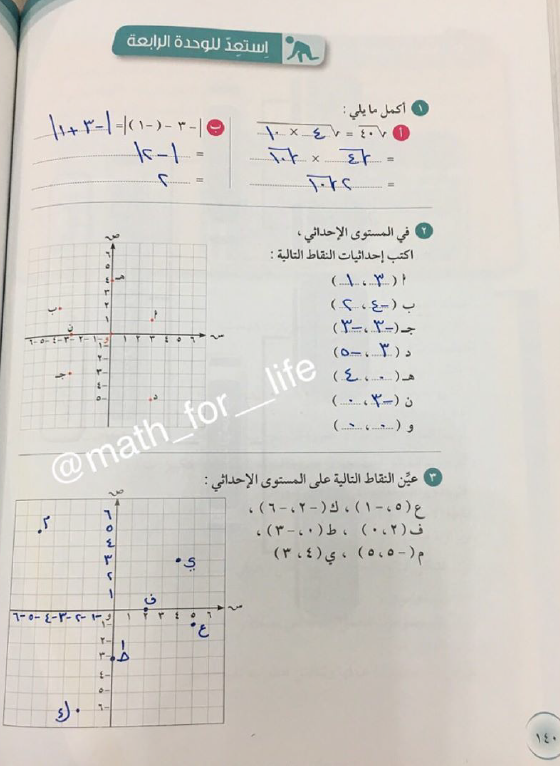 إستعدّ للوحدة الرابعة
١ أكمل ما يلي :
أ √٤٠ = √٤ × ١٠
= √٤ × √١٠
= ٢√١٠
ب |-٣ - (-١)| = |-٣ + ١|
= |-٢|
= ٢
٢ في المستوى الإحداثي ،
اكتب إحداثيات النقاط التالية :
أ (٣ ، ١)
ب (-٤ ، ٢)
جـ (-٣ ، -٣)
د (٣ ، -٥)
هـ (٠ ، ٤)
ن (-٣ ، ٠)
و (٠ ، ٠)
@math_for__life
٣ عيّن النقاط التالية على المستوى الإحداثي :
ع (٥ ، -١) ، ك (-٢ ، -٦) ،
ف (٢ ، ٠) ، ط (٠ ، -٣) ،
م (-٥ ، ٥) ، ي (٤ ، ٣)
١٤٠